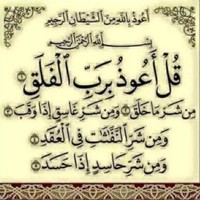 أَعُوذُ بِاللَّهِ مِنَ الشَّيْطَانِ الرَّجِيمِ
بِسْمِ اللَّهِ الرَّحْمَٰنِ الرَّحِيمِ
قُلْ أَعُوذُ بِرَبِّ الْفَلَقِ
مِن شَرِّ مَا خَلَقَ وَمِن شَرِّ غَاسِقٍ إِذَا وَقَبَ
وَمِن شَرِّ النَّفَّاثَاتِ فِي الْعُقَدِ
وَمِن شَرِّ حَاسِدٍ إِذَا حَسَدَ